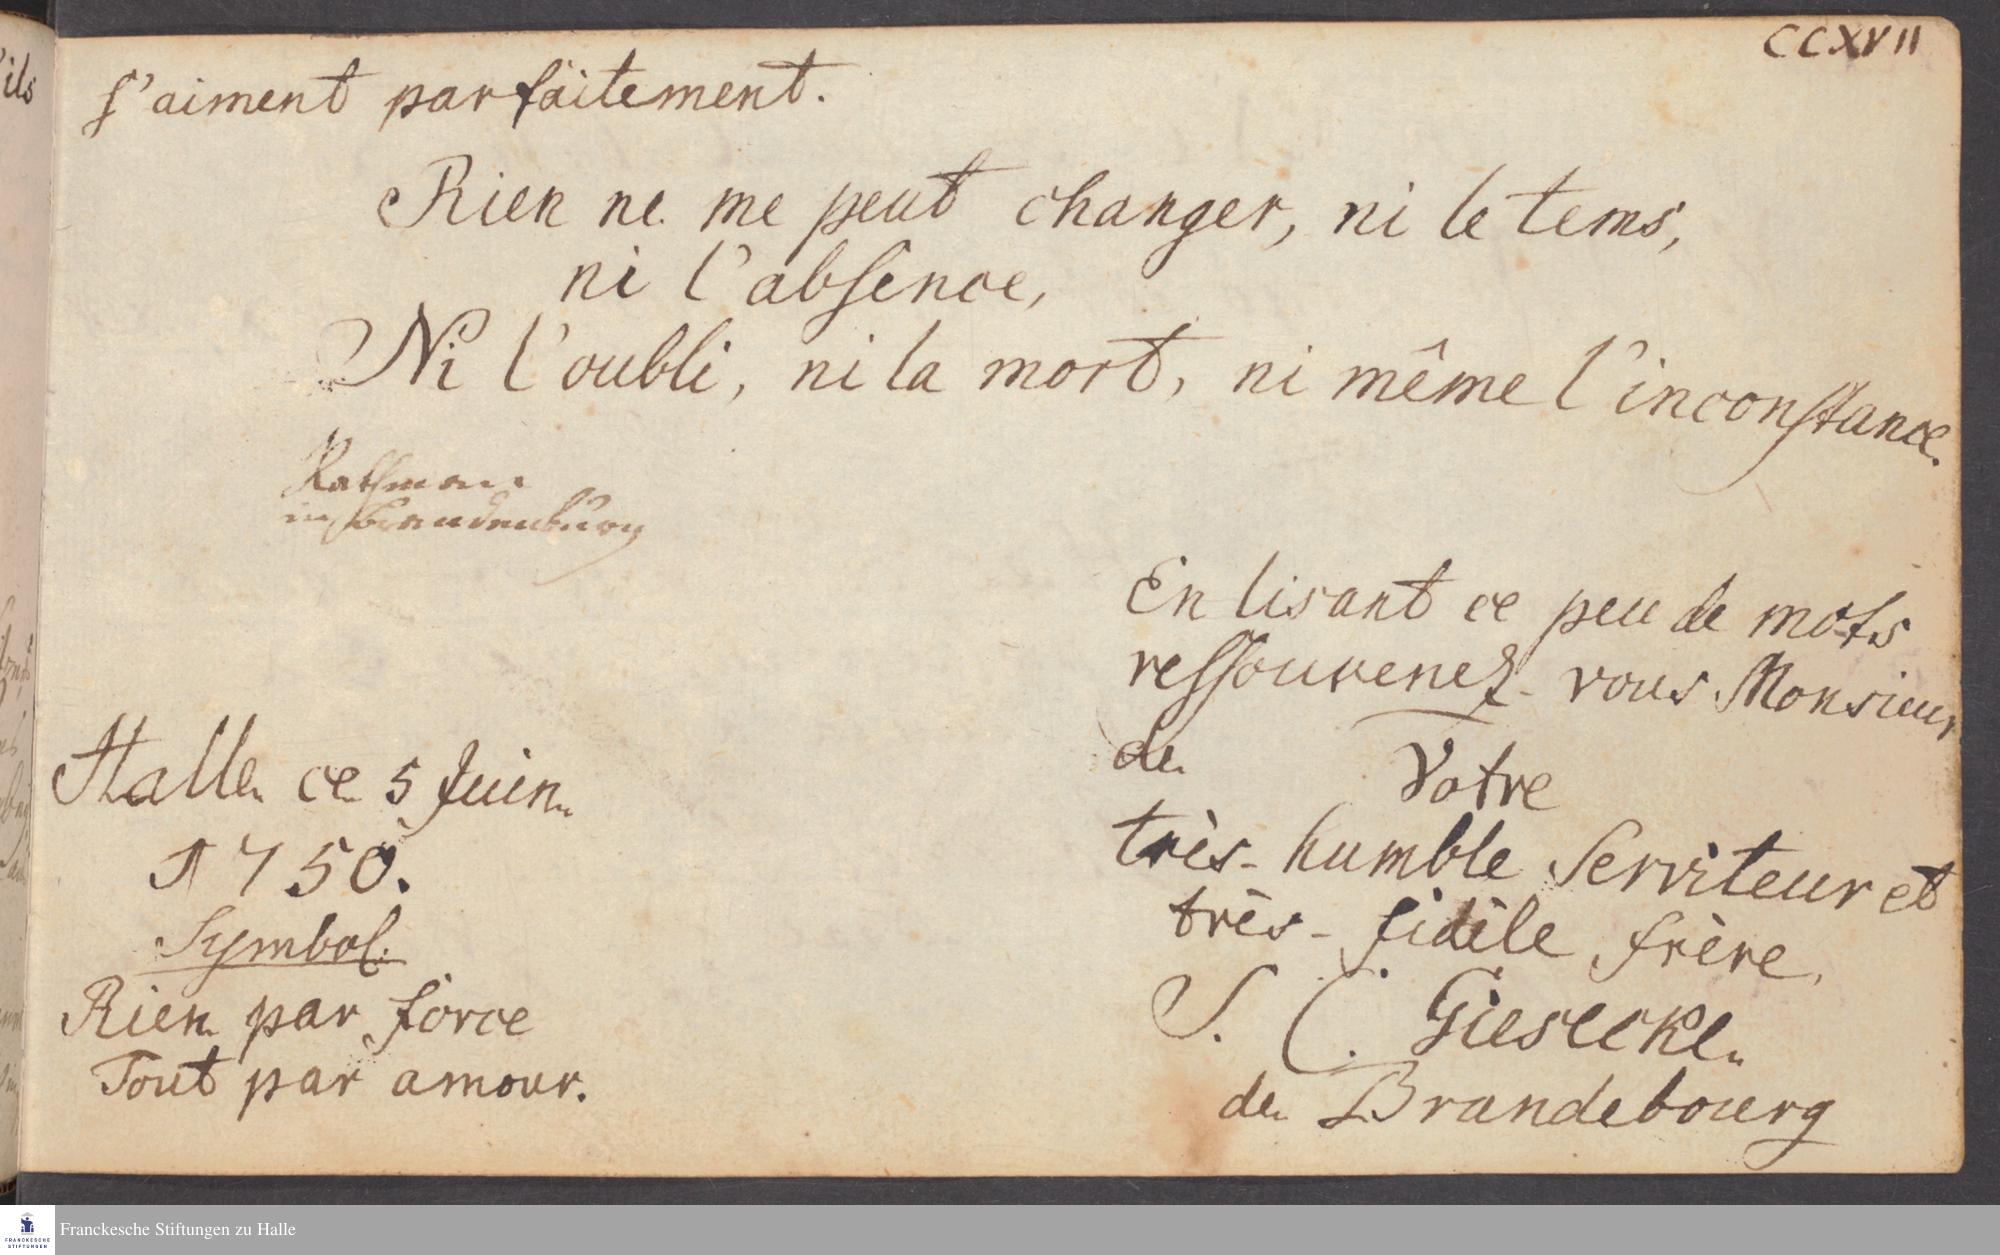 CCXVII
s'aiment parfaitement.
Rien ne me peut changer, ni le tems,
ni l'absence,
Ni l'oubli, ni la mort, ni même l'inconstance.
Rathmann
in Brandenburg
En lisant ce peu de mots
ressouvenez-vous Monsieur
de Votre
très-humble Serviteur et
très-fidèle frère,
S. C. Giesecke
de Brandebourg
Halle ce 5 Juin
1750.
Symbol.
Rien par force
Tout par amour.
ils
FRANCKESCHE
STIFTUNGEN
Franckesche Stiftungen zu Halle